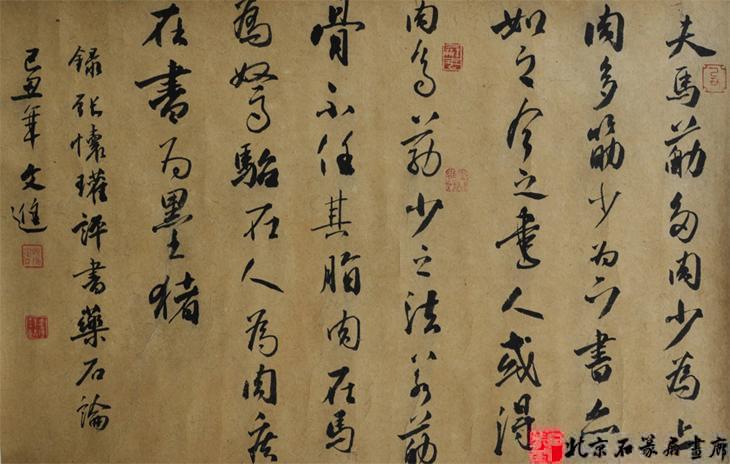 夫馬筋多肉少為上
肉多筋少为下書亦
如之今之書人或得
肉多筋少之法若筋
骨不任其脂肉在馬
為駑駘在人為肉疾
在書为墨猪
録張懷瓘評書藥石論
己丑年文進
北京石篆居畫廊